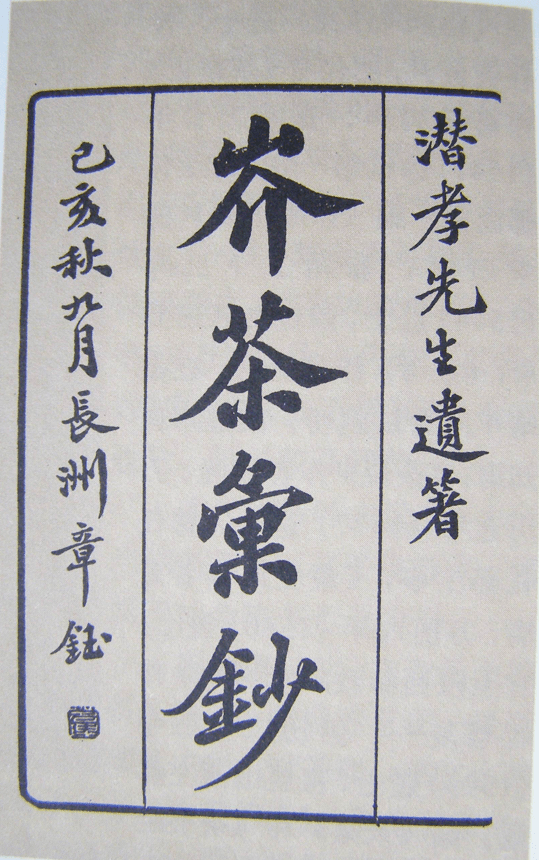 潛孝先生遺箸
岕茶彙鈔
己亥秋九月長洲章鈺